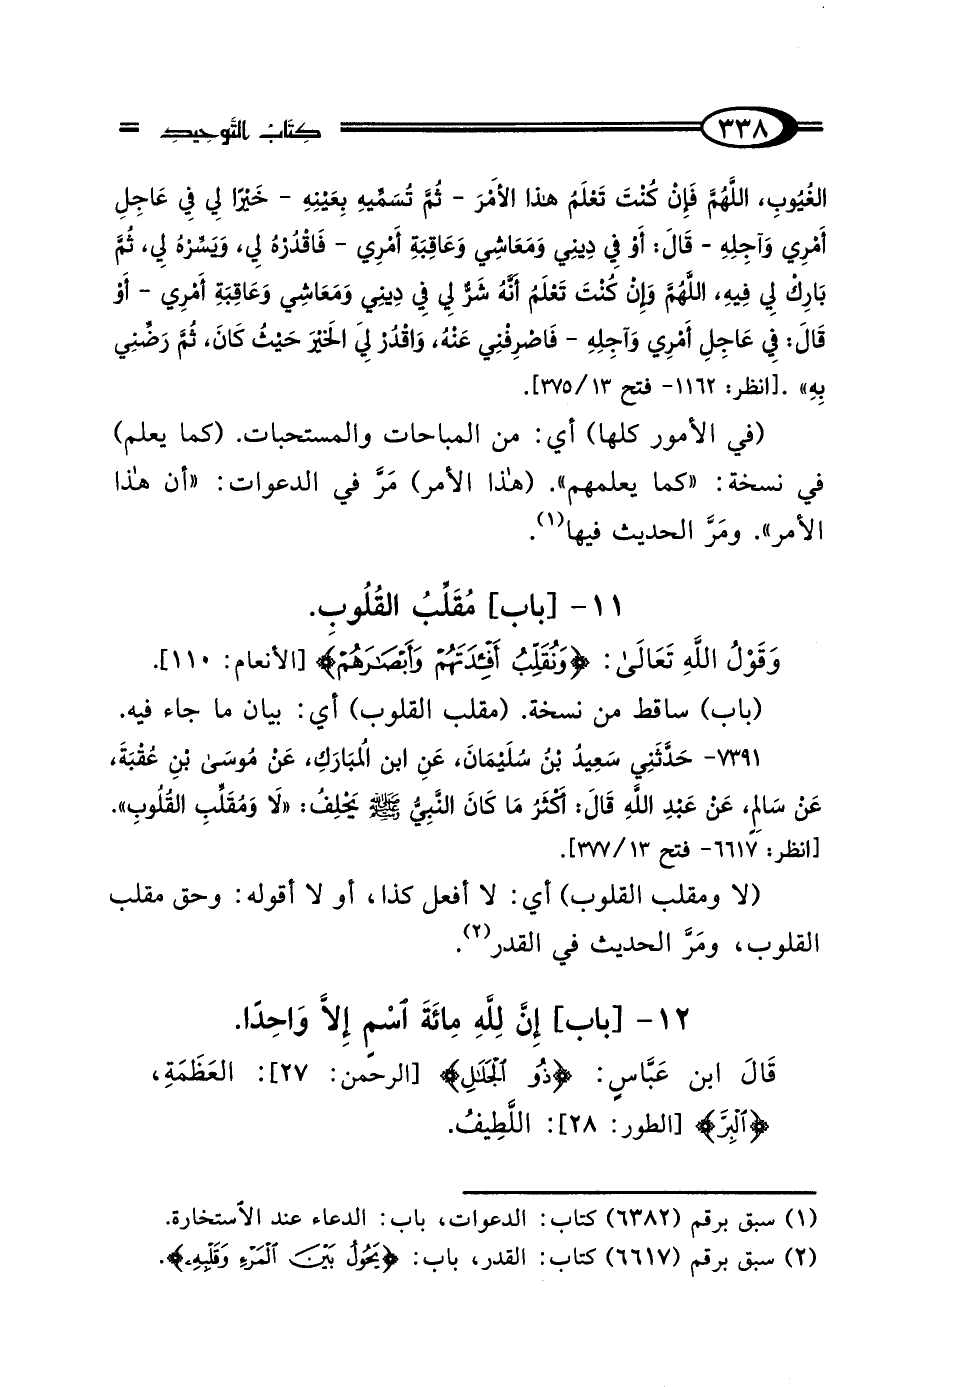 ٣٣٨ كتاب التوحيد
الغُيُوبِ، اللَّهُمَّ فَإِنْ كُنْتَ تَعْلَمُ هذا الأَمْرَ - ثُمَّ تُسَمِّيهِ بِعَيْنِهِ - خَيْرًا لِي فِي عَاجِلِ
أَمْرِي وَآجِلِهِ - قَالَ: أَوْ فِي دِينِي وَمَعَاشِي وَعَاقِبَةِ أَمْرِي - فَاقْدُرْهُ لِي، وَيَسِّرْهُ لِي، ثُمَّ
بَارِكْ لِي فِيهِ، اللَّهُمَّ وَإِنْ كُنْتَ تَعْلَمُ أَنَّهُ شَرٌّ لِي فِي دِينِي وَمَعَاشِي وَعَاقِبَةِ أَمْرِي - أَوْ
قَالَ: فِي عَاجِلِ أَمْرِي وَآجِلِهِ - فَاصْرِفْنِي عَنْهُ، وَاقْدُرْ لِيَ الخَيْرَ حَيْثُ كَانَ، ثُمَّ رَضِّنِي
بِهِ» .[انظر: ١١٦٢- فتح ٣٧٥/١٣].
(في الأمور كلها) أي: من المباحات والمستحبات. (كما يعلم)
في نسخة: «كما يعلمهم». (هٰذا الأمر) مَرَّ في الدعوات: «أن هٰذا
الأمر». ومَرَّ الحديث فيها(١).
١١- [باب] مُقَلِّبُ القُلُوبِ.
وَقَوْلُ اللَّهِ تَعَالَىٰ: ﴿وَنُقَلِّبُ أَفْـِٔدَتَهُمْ وَأَبْصَـٰرَهُمْ﴾ [الأنعام: ١١٠].
(باب) ساقط من نسخة. (مقلب القلوب) أي: بيان ما جاء فيه.
٧٣٩١- حَدَّثَنِي سَعِيدُ بْنُ سُلَيْمَانَ، عَنِ ابن المُبَارَكِ، عَنْ مُوسَىٰ بْنِ عُقْبَةَ،
عَنْ سَالِمٍ، عَنْ عَبْدِ اللَّهِ قَالَ: أَكْثَرُ مَا كَانَ النَّبِيُّ ﷺ يَحْلِفُ: «لَا وَمُقَلِّبِ القُلُوبِ».
[انظر: ٦٦١٧- فتح ٣٧٧/١٣].
(لا ومقلب القلوب) أي: لا أفعل كذا، أو لا أقوله: وحق مقلب
القلوب، ومَرَّ الحديث في القدر(٢).
١٢- [باب] إِنَّ لِلَّهِ مِائَةَ ٱسْمٍ إِلاَّ وَاحِدًا.
قَالَ ابن عَبَّاسٍ: ﴿ذُو ٱلْجَلَـٰلِ﴾ [الرحمن: ٢٧]: العَظَمَةِ،
﴿ٱلْبَرُّ﴾ [الطور: ٢٨]: اللَّطِيفُ.
(١) سبق برقم (٦٣٨٢) كتاب: الدعوات، باب: الدعاء عند الٱستخارة.
(٢) سبق برقم (٦٦١٧) كتاب: القدر، باب: ﴿يَحُولُ بَيْنَ ٱلْمَرْءِ وَقَلْبِهِۦ﴾.